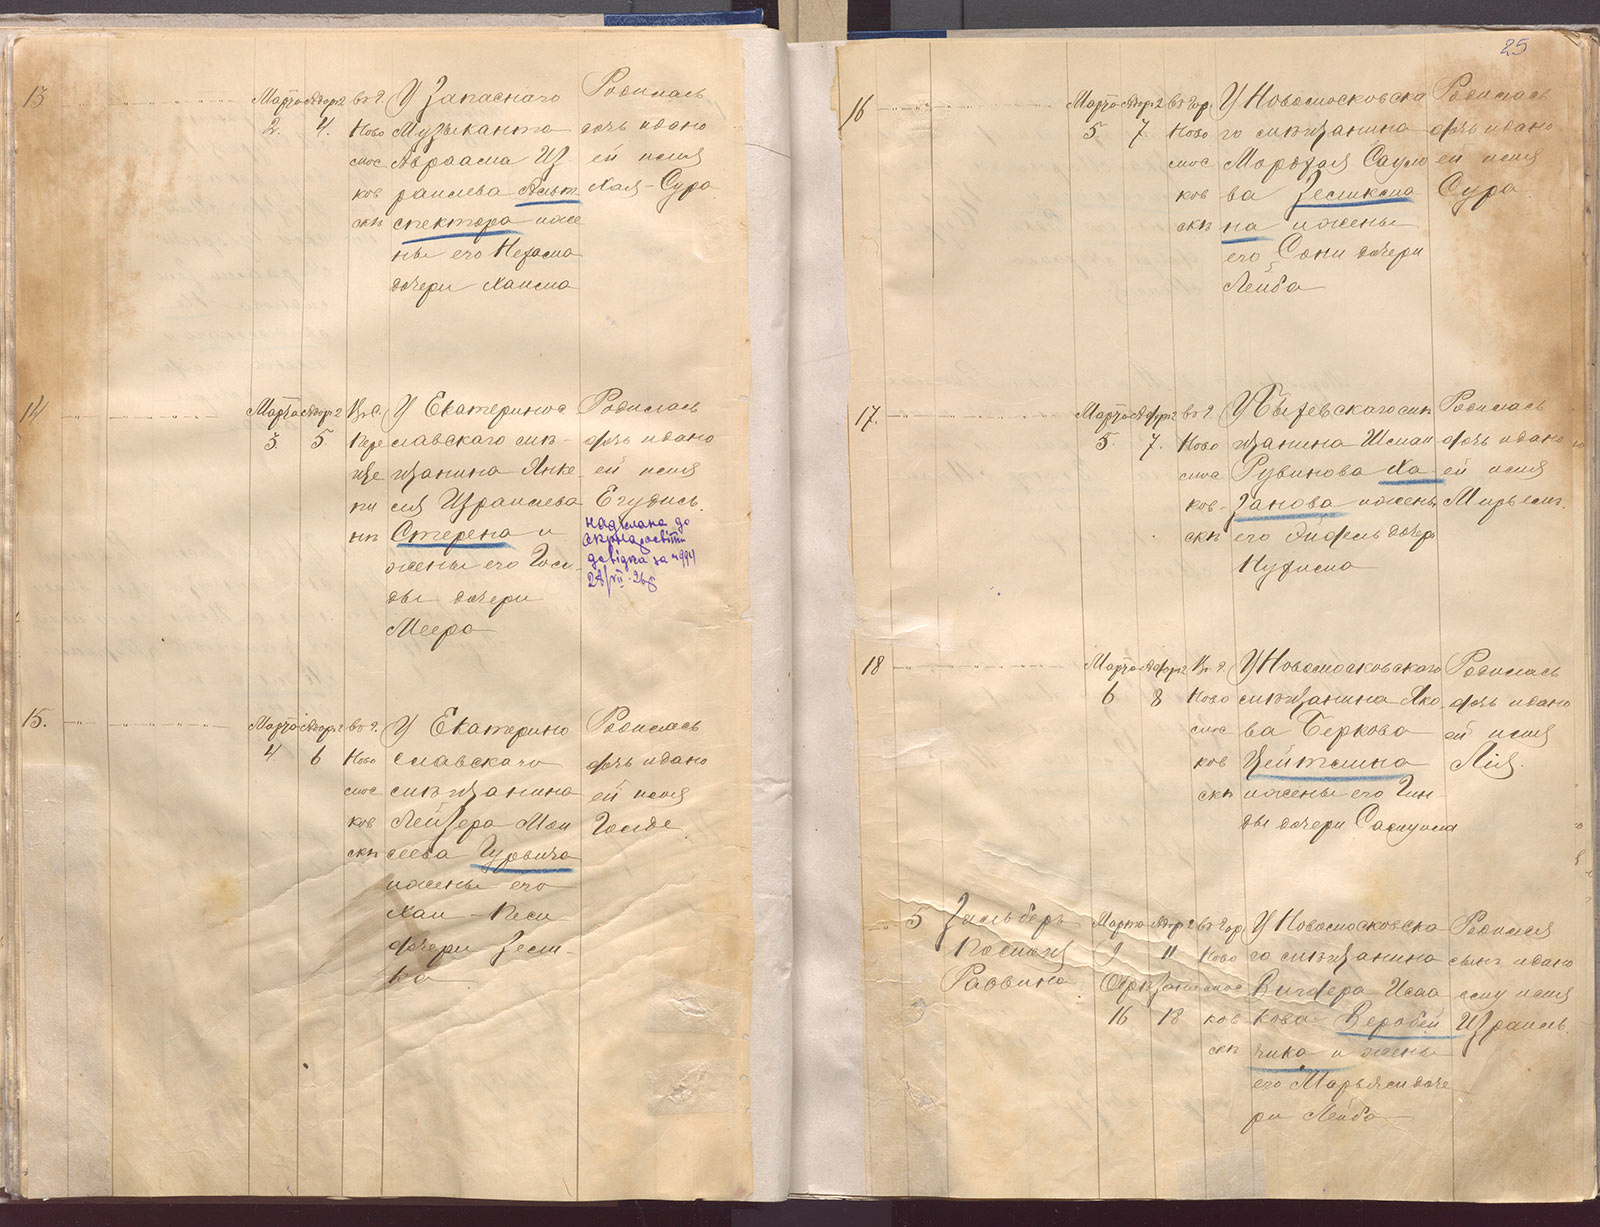 13
Марта Адар 2
2. 4.
въ г.
Ново
мос
ков
скѣ
У Запаснаго
Музыканта
Авраама Из
раилева Альт
спектора и же
ны его Нехама
дочери Хаима
Родилась
дочь и дано
ей имя
Хая-Сура
14
Марта Адар 2
3. 5.
Въ с.
Пере
ще
пи
нѣ
У Екатеринос
лавскаго мѣ-
щанина Янке
ля Израилева
Стерена и
жены его Гол
ды дочери
Меера
Родилась
дочь и дано
ей имя
Егудись.
надіслана до
довідка за ч 994
15.
Марта Адар 2
4. 6
въ г.
Ново
мос
ков
скѣ
У Екатерино
славскаго
мѣщанина
Лейзера Мои
сеева Гурвича
и жены его
Хаи-Песи
дочери Зели-
ка
Родилась
дочь и дано
ей имя
Голде
25
16
Марта Адар 2
5 7
въ гор.
Ново
мос
ков
скѣ
У Новомосковска
го мѣщанина
Мордхая Сауло
ва Зеликма
на и жены
его Сони дочери
Лейба
Родилась
дочь и дано
ей имя
Сура
17.
Марта Адар 2
5. 7.
въ г.
Ново
мос
ков-
скѣ
мѣ
щанина Шмаи
Рувинова Ха
занова и жены
его Эйдель дочери
Нухима
Родилась
дочь и дано
ей имя
Марьесл.
18
Марта Адар 2
6 8
Въ г.
Ново
мос
ков
скѣ
У Новомосковскаго
мѣщанина Яко
ва Беркова
Цейтлина
и жены его Гин
ды дочери Самуила
Родилась
дочь и дано
ей имя
Лія.
5
Зильберъ
Раввина
Марта Адар 2
9 11
Обрѣзанъ
16 18
въ гор.
Ново
мос
ков
скѣ
У Новомосковска
го мѣщанина
Вигдера Исаа
кова Веробей
чика и жены
его Марьяси доче
ри Лейба
Родился
сынъ и дано
ему имя
Израиль.